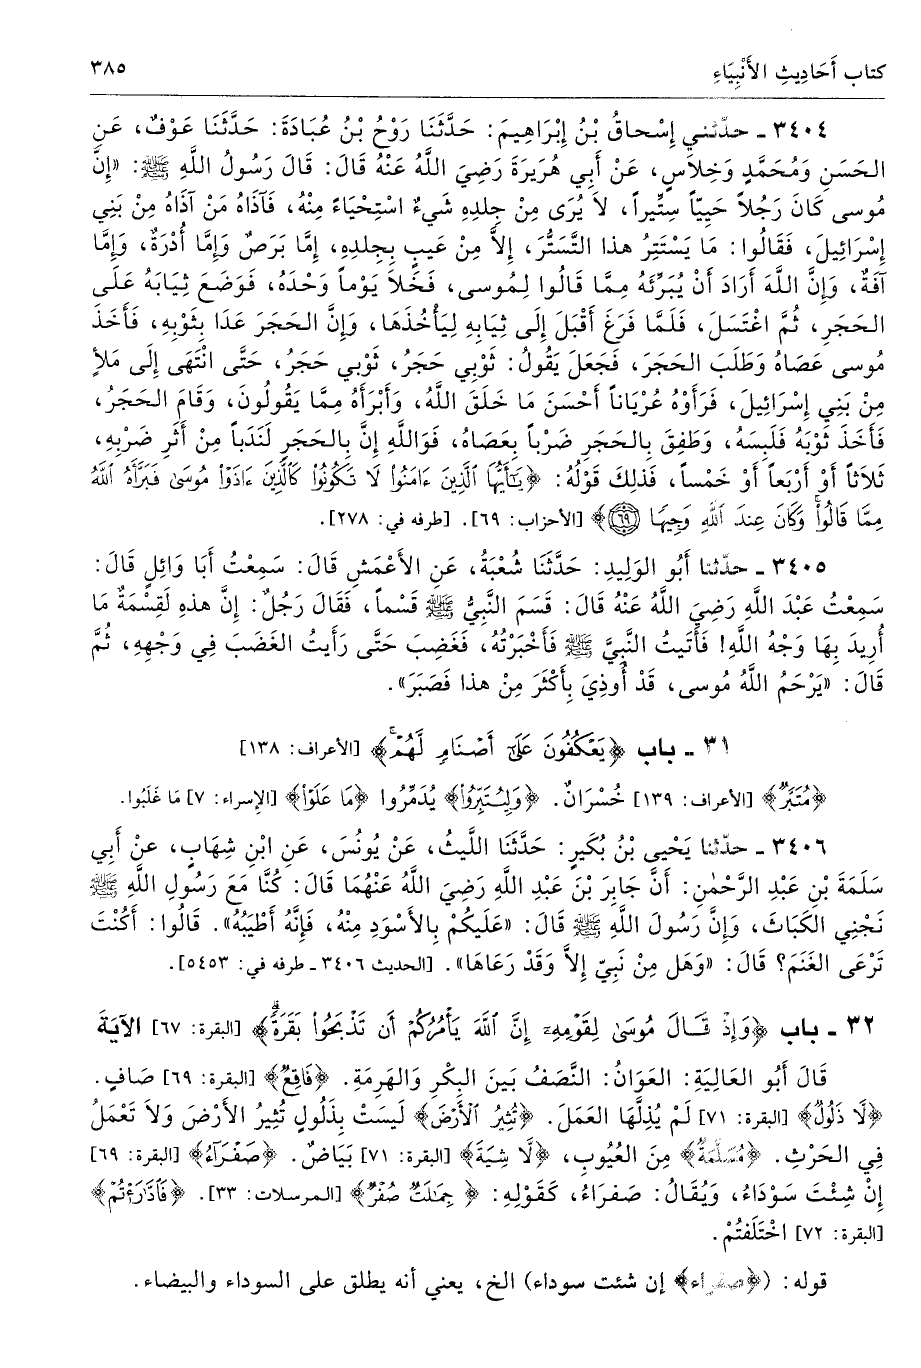 كتاب أَحَادِيثِ الأَنْبِيَاءِ
٣٨٥
٣٤٠٤ ـ حدّثني إِسْحاقُ بْنُ إِبْرَاهِيمَ: حَدَّثَنَا رَوْحُ بْنُ عُبَادَةَ: حَدَّثَنَا عَوْفٌ، عَنِ
الحَسَنِ وَمُحَمَّدٍ وَخِلَاسٍ، عَنْ أَبِي هُرَيرَةَ رَضِيَ اللَّهُ عَنْهُ قَالَ: قَالَ رَسُولُ اللَّهِ ﷺ: «إِنَّ
مُوسى كَانَ رَجُلاً حَيِيّاً سِتِّيراً، لاَ يُرَى مِنْ جِلدِهِ شَيءٌ اسْتِحْيَاءً مِنْهُ، فَآذَاهُ مَنْ آذَاهُ مِنْ بَنِي
إِسْرَائِيلَ، فَقَالُوا: مَا يَسْتَتِرُ هذا التَّسَتُّرَ، إِلاَّ مِنْ عَيبٍ بِجِلدِهِ، إِمَّا بَرَصٌ وَإِمَّا أُدْرَةٌ، وَإِمَّا
آفَةٌ، وَإِنَّ اللَّهَ أَرَادَ أَنْ يُبَرِّئَهُ مِمَّا قَالُوا لِمُوسى، فَخَلاَ يَوْماً وَحْدَهُ، فَوَضَعَ ثِيَابَهُ عَلَى
الحَجَرِ، ثُمَّ اغْتَسَلَ، فَلَمَّا فَرَغَ أَقْبَلَ إِلَى ثِيَابِهِ لِيَأْخُذَهَا، وَإِنَّ الحَجَرَ عَدَا بِثَوْبِهِ، فَأَخَذَ
مُوسى عَصَاهُ وَطَلَبَ الحَجَرَ، فَجَعَلَ يَقُولُ: ثَوْبِي حَجَرُ، ثَوْبي حَجَرُ، حَتَّى انْتَهَى إِلَى مَلأٍ
مِنْ بَنِي إِسْرَائِيلَ، فَرَأَوْهُ عُرْيَاناً أَحْسَنَ مَا خَلَقَ اللَّهُ، وَأَبْرَأَهُ مِمَّا يَقُولُونَ، وَقَامَ الحَجَرُ،
فَأَخَذَ ثَوْبَهُ فَلَبِسَهُ، وَطَفِقَ بِالحَجَرِ ضَرْباً بِعَصَاهُ، فَوَاللَّهِ إِنَّ بِالحَجَرِ لَنَدَباً مِنْ أَثَرِ ضَرْبِهِ،
ثَلاَثاً أَوْ أَرْبَعاً أَوْ خَمْساً، فَذلِكَ قَوْلُهُ: ﴿يَٰٓأَيُّهَا ٱلَّذِينَ ءَامَنُوا۟ لَا تَكُونُوا۟ كَٱلَّذِينَ ءَاذَوْا۟ مُوسَىٰ فَبَرَّأَهُ ٱللَّهُ
مِمَّا قَالُوا۟ۚ وَكَانَ عِندَ ٱللَّهِ وَجِيهًا ٦٩﴾ [الأحزاب: ٦٩]. [طرفه في: ٢٧٨].
٣٤٠٥ ـ حدّثنا أَبُو الوَلِيدِ: حَدَّثَنَا شُعْبَةُ، عَنِ الأَعْمَشِ قَالَ: سَمِعْتُ أَبَا وَائِلٍ قَالَ:
سَمِعْتُ عَبْدَ اللَّهِ رَضِيَ اللَّهُ عَنْهُ قَالَ: قَسَمَ النَّبِيُّ ﷺ قَسْماً، فَقَالَ رَجُلٌ: إِنَّ هذِهِ لَقِسْمَةٌ مَا
أُرِيدَ بِهَا وَجْهُ اللَّهِ! فَأَتَيتُ النَّبِيَّ ﷺ فَأَخْبَرْتُهُ، فَغَضِبَ حَتَّى رَأَيتُ الغَضَبَ فِي وَجْهِهِ، ثُمَّ
قَالَ: «يَرْحَمُ اللَّهُ مُوسى، قَدْ أُوذِيَ بِأَكْثَرَ مِنْ هذا فَصَبَرَ».
٣١ ـ باب ﴿يَعْكُفُونَ عَلَىٰٓ أَصْنَامٍ لَّهُمْۚ﴾ [الأعراف: ١٣٨]
﴿مُتَبَّرٌ﴾ [الأعراف: ١٣٩] خُسْرَانٌ. ﴿وَلِيُتَبِّرُوا۟﴾ يُدَمِّرُوا ﴿مَا عَلَوْا۟﴾ [الإسراء: ٧] مَا غَلَبُوا.
٣٤٠٦ ـ حدّثنا يَحْيى بْنُ بُكَيرٍ: حَدَّثَنَا اللَّيثُ، عَنْ يُونُسَ، عَنِ ابْنِ شِهَابٍ، عنْ أَبِي
سَلَمَةَ بْنِ عَبْدِ الرَّحْمٰنِ: أَنَّ جَابِرَ بْنَ عَبْدِ اللَّهِ رَضِيَ اللَّهُ عَنْهُمَا قَالَ: كُنَّا مَعَ رَسُولِ اللَّهِ ﷺ
نَجْنِي الكَبَاثَ، وَإِنَّ رَسُولَ اللَّهِ ﷺ قَالَ: «عَلَيكُمْ بِالأَسْوَدِ مِنْهُ، فَإِنَّهُ أَطْيَبُهُ». قَالُوا: أَكُنْتَ
تَرْعَى الغَنَمَ؟ قَالَ: «وَهَل مِنْ نَبِيّ إِلاَّ وَقَدْ رَعَاهَا». [الحديث ٣٤٠٦ ـ طرفه في: ٥٤٥٣].
٣٢ ـ باب ﴿وَإِذْ قَالَ مُوسَىٰ لِقَوْمِهِۦٓ إِنَّ ٱللَّهَ يَأْمُرُكُمْ أَن تَذْبَحُوا۟ بَقَرَةًۖ﴾ [البقرة: ٦٧] الآيَةَ
قَالَ أَبُو العَالِيَةِ: العَوَانُ: النَّصَفُ بَينَ البِكْرِ وَالهَرِمَةِ. ﴿فَاقِعٌ﴾ [البقرة: ٦٩] صَافٍ.
﴿لَّا ذَلُولٌ﴾ [البقرة: ٧١] لَمْ يُذِلَّهَا العَمَلُ. ﴿تُثِيرُ ٱلْأَرْضَ﴾ لَيسَتْ بِذَلُولٍ تُثِيرُ الأَرْضَ وَلاَ تَعْمَلُ
فِي الحَرْثِ. ﴿مُسَلَّمَةٌ﴾ مِنَ العُيُوبِ، ﴿لَّا شِيَةَ﴾ [البقرة: ٧١] بَيَاضٌ. ﴿صَفْرَآءُ﴾ [البقرة: ٦٩]
إِنْ شِئْتَ سَوْدَاءُ، وَيُقَالُ: صَفرَاءُ، كَقَوْلِهِ: ﴿جِمَٰلَتٌ صُفْرٌ﴾ [المرسلات: ٣٣]. ﴿فَٱدَّٰرَْٰٔتُمْ﴾
[البقرة: ٧٢] اخْتَلَفتُمْ.
قوله: (﴿صفراء﴾ إن شئت سوداء) الخ، يعني أنه يطلق على السوداء والبيضاء.